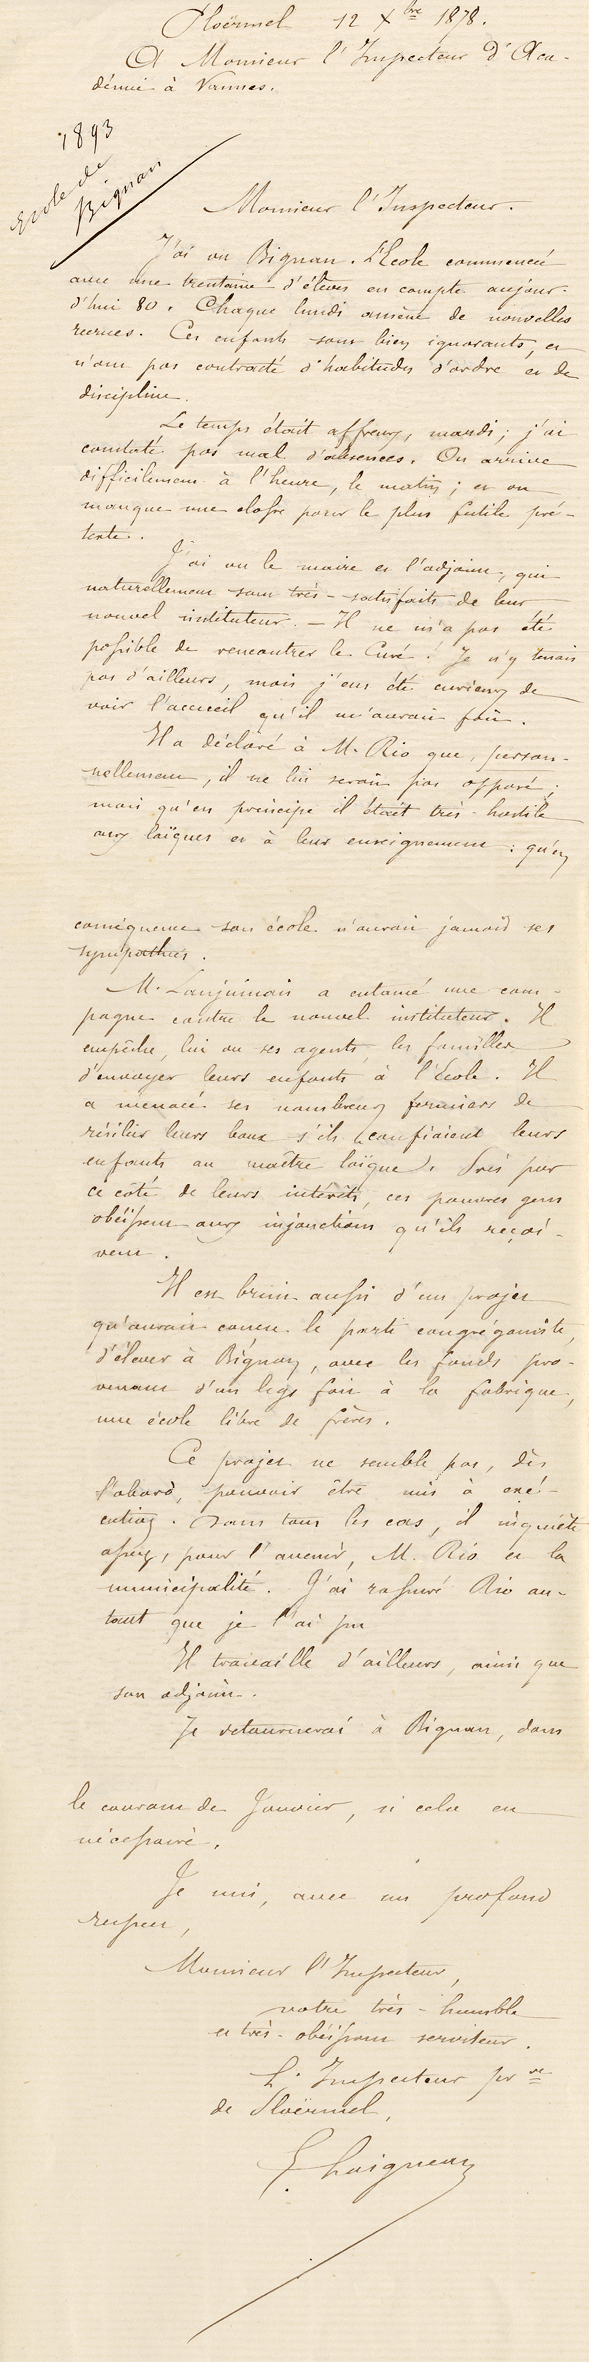 Ploërmel 12 Xbre 1878.
A Monsieur l'Inspecteur d'Aca-
démie à Vannes.
1893
Ecole de
Bignan
Monsieur l'Inspecteur.
J'ai vu Bignan. L'Ecole commencée
avec une trentaine d'élèves en compte aujour-
d'hui 80. Chaque lundi amène de nouvelles
recrues. Ces enfants sont bien ignorants, et
n'ont pas contracté d'habitudes d'ordre et de
discipline.
Le temps était affreux, mardi; j'ai
constaté pas mal d'absences. On arrive
difficilement à l'heure, le matin; et on
manque une classe pour le plus futile pré-
texte.
J'ai vu le maire et l'adjoint, qui
naturellement sont très-satisfaits de leur
nouvel instituteur. — Il ne m'a pas été
possible de rencontrer le Curé. Je n'y tenais
pas d'ailleurs, mais j'eus été curieux de
voir l'accueil qu'il m'aurait fait.
Il a déclaré à M. Rio que, person-
nellement, il ne lui serait pas opposé;
mais qu'en principe il était très-hostile
aux laïques et à leur enseignement: qu'en
conséquence son école n'aurait jamais ses
sympathies.
M. Lanjuinais a entamé une cam-
pagne contre le nouvel instituteur. Il
empêche, lui ou ses agents, les familles
d'envoyer leurs enfants à l'Ecole. Il
a menacé ses nombreux fermiers de
résilier leurs baux s'ils (confiaient leurs
enfants au maître laïque). Pris par
ce côté de leurs intérêts, ces pauvres gens
obéissent aux injonctions qu'ils reçoi-
vent.
Il est bruit aussi d'un projet
qu'aurait conçu le parti congréganiste,
d'élever à Bignan, avec les fonds pro-
venant d'un legs fait à la fabrique,
une école libre de frères.
Ce projet ne semble pas, dès
l'abord, pouvoir être mis à exé-
cution. Dans tous les cas, il inquiète
assez, pour l'avenir, M. Rio et la
municipalité. J'ai rassuré Rio au-
tant que je l'ai pu
Il travaille d'ailleurs, ainsi que
son adjoint.
Je retournerai à Bignan, dans
le courant de Janvier, si cela est
nécessaire.
Je suis, avec un profond
respect,
Monsieur l'Inspecteur,
votre très-humble
et très-obéissant serviteur.
L'Inspecteur prre
de Ploërmel,